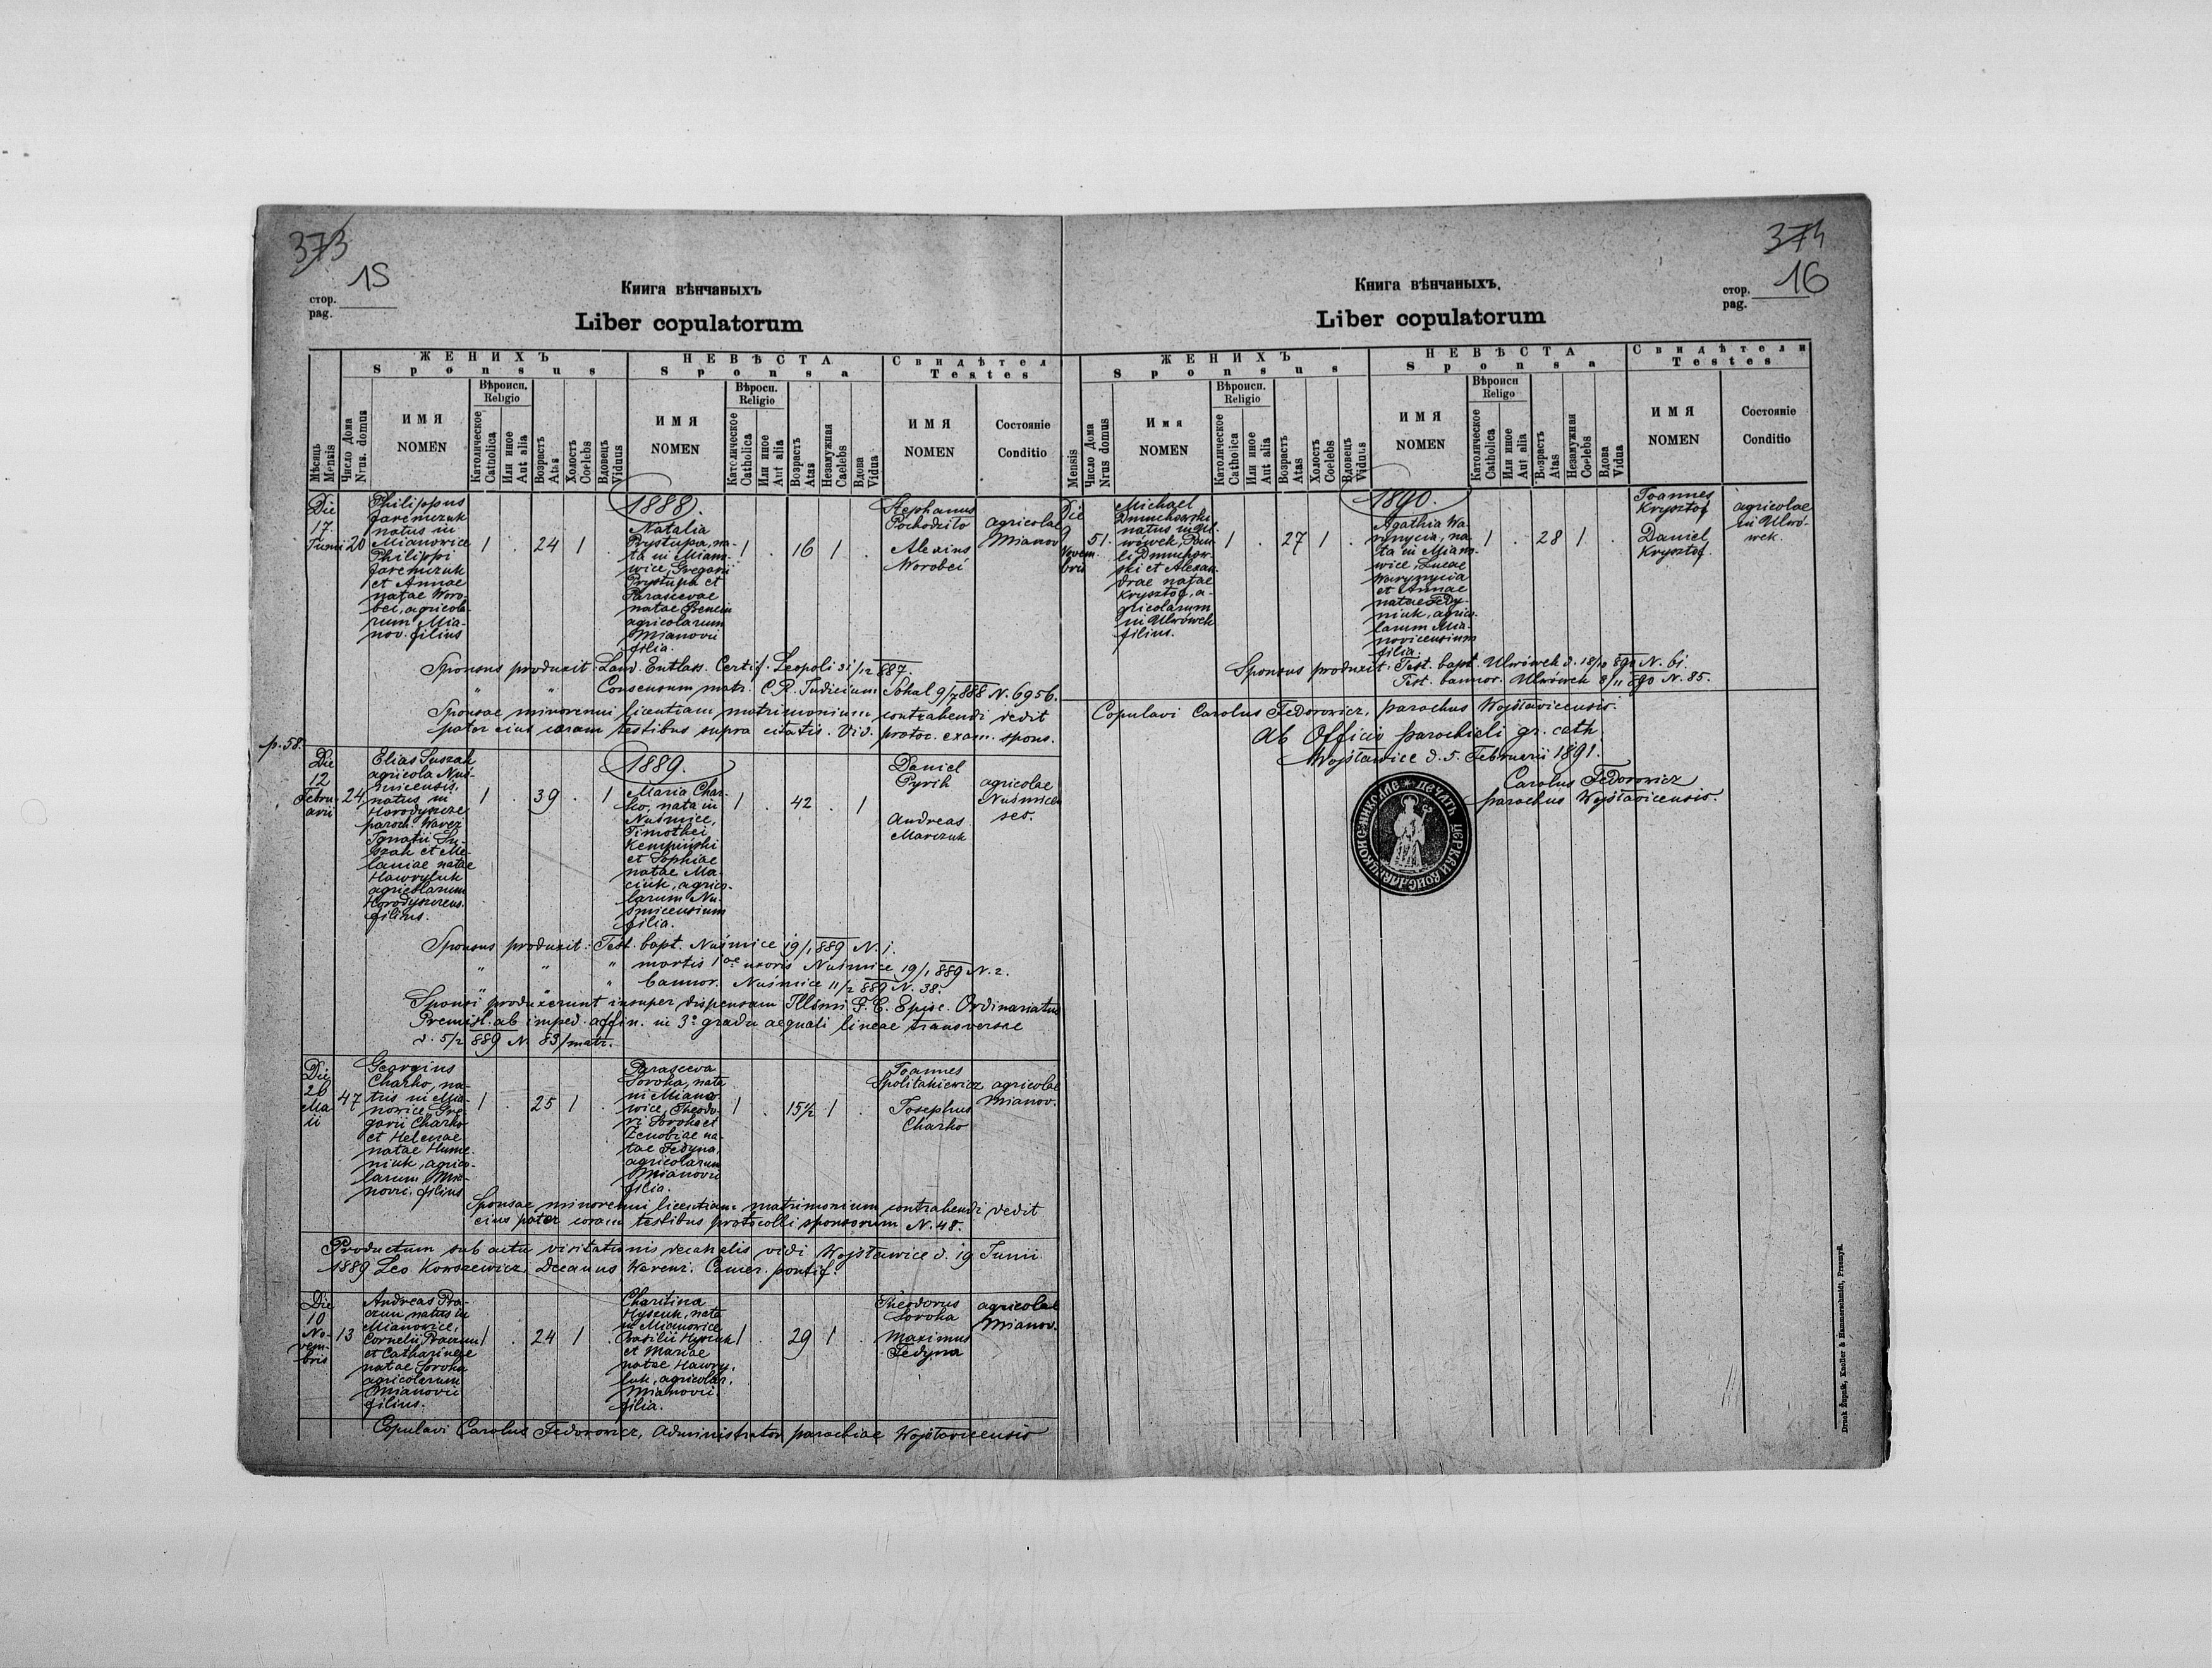 373
15
стор.
pag.
Книга вѣнчаныхъ
Liber copulatorum
ЖЕНИХЪ
Sponsus
НЕВѢСТА
Sponsa
Свидѣтел
Testes
Мѣсяць
Mensis
Число Дома
Nrus. domus
ИМЯ
NOMEN
Вѣроисп.
Religio
Католическое
Catholica
Или иное
Aut alia
Возрастъ
Atas
Холостъ
Coelebs
Вдовецъ
Viduus
ИМЯ
NOMEN
Вѣросп.
Religio
Католическое
Catholica
Или иное
Aut alia
Возрастъ
Atas
Незамужная
Caelebs
Вдова
Vidua
ИМЯ
NOMEN
Состояніе
Conditio
Die
17.
Junii
20
Philippus
Jaremczuk
natus in
Mianowice
Philippi
Jaremczuk
et Annae
natae Woro-
bec, agricola-
rum Mia-
nov. filius
1 . 24 1 .
1888.
Natalia
Prystupa, na-
ta in Miano-
wice, Gregorii
Prystupa et
Parascevae
natae
agricolarum
Mianovii
filia.
1 . 16 1 .
Stephanus
Pochodzilo
Alexius
Worobei
agricolae
Mianov
Sponsus produxit: Land. Entlass. Certif. Leopoli 31/12 887.
" " Consensum matr. C.R. Judicium Sokal 9/7 888 N. 6956.
Sponsae minorenni licentiam matrimonium contrahendi dedit
pater eius coram testibus supra citatis. Vid. protoc. exam. spons.
p. 58.
Die
12
Febru-
arii
24
Elias Suszak
agricola Nuś-
micensis,
natus in
Horodyszcze
paroch. Warez
Ignatii Su-
szak et Me-
laniae natae
Hawryluk
agricolarum
Horodyszcens.
filius.
1 . 39 . 1
1889.
Maria Char-
ko, nata in
Nuśmice,
Timothei
Kempiński
et Sophiae
natae Ma-
ciuk, agrico-
larum Nu-
śmicensium
filia.
1 . 42 . 1
Daniel
Pyrih
Andreas
Marczuk
agricolae
Nuśmicen
ses.
Sponsus produxit: Test. bapt. Nuśmice 19/1 889 N. 1.
" " " mortis 1ae uxoris Nuśmice 19/1 889 N. 2.
" " " bannor. Nuśmice 11/2 889 N. 38.
Sponsi produxerunt insuper dispensam Illmi G. C. Episc. Ordinariatus
Premisl. ab imped. affin. in 3o gradu aequali lineae transversae
d. 5/2 889 N. 83/matr.
Die
26
Ma
ii
47
Georgius
Charko, na-
tus in Mia-
nowice, Gre-
gorii Charko
et Helenae
natae Hume-
niuk, agrico-
larum Mia-
novii. filius
1 . 25 1 .
Parasceva
Soroka, nata
in Miano-
wice, Theodo-
ri Soroka et
Zenobiae na-
tae Fedyna,
agricolarum
Mianovii
filia.
1 . 15½ 1 .
Joannes
Spolitakiewicz
Josephus
Charko
agricolae
Mianov.
Sponsae minorenni licentiam matrimonium contrahendi dedit
eius pater coram testibus protocolli sponsorum N. 48.
Productum sub actu visitationis decanalis vidi Wojsławice d. 19 Junii
1889 Leo Kowszewicz, Decanus Warenz. Camer. pontif.
Die
10
No-
vem-
bris
13
Andreas Pra-
czun natus in
Mianowice,
Cornelii Praczun
et Catharinae
natae Soroka
agricolarum
Mianovii
filius.
1 . 24 1 .
Charitina
nata
in Mianowice
Basilii
et Mariae
natae Hawry-
luk, agricolar.
Mianovii.
filia.
1 . 29 1 .
Theodorus
Soroka
Maximus
Fedyna
agricolae
Mianov.
Copulavi Carolus Fedorowicz, Administrator parochiae Wojsławicensis
374
16
стор.
pag.
Книга вѣнчаныхъ.
Liber copulatorum
ЖЕНИХЪ
Sponsus
НЕВѢСТА
Sponsa
Свидѣтели
Testes
Mensis
Число Дома
Nrus domus
Имя
NOMEN
Вѣроисп.
Religio
Католическое
Catholica
Или иное
Aut alia
Возрастъ
Atas
Холостъ
Coelebs
Вдовецъ
Viduus
ИМЯ
NOMEN
Вѣроисп
Religo
Католическое
Catholica
Или иное
Aut alia
Возрастъ
Atas
Незамужная
Coelebs
Вдова
Vidua
ИМЯ
NOMEN
Состояніе
Conditio
Die
9
Novem-
bris
51.
Michael
Dmuchowski
natus in Ul-
wówek, Pau-
li Dmuchow-
ski et Alexan-
drae natae
Krysztof, a-
gricolarum
in Ulwówek
filius.
1 . 27 1 .
1890.
Agathia Wa-
rynycia, na-
ta in Miano-
wice, Lucae
Warynycia
et Annae
natae Fedy-
niuk, agrico-
larum Mia-
novicensium
filia.
1 . 28 1 .
Joannes
Krysztof
Daniel
Krysztof.
agricolae
in Ulwó-
wek.
Sponsus produxit: Test. bapt. Ulwówek d. 18/10 890 N. 61.
Test. bannor. Ulwówek 8/11 890 N. 85.
Copulavi Carolus Fedorowicz, parochus Wojsławicensis.
Ab Officio parochiali gr. cath.
Wojsławice d. 5. Februarii 1891.
Carolus Fedorowicz
parochus Wojsławicensis.
Druck Żupnik, Knoller & Hammerschmidt, Przemyśl.